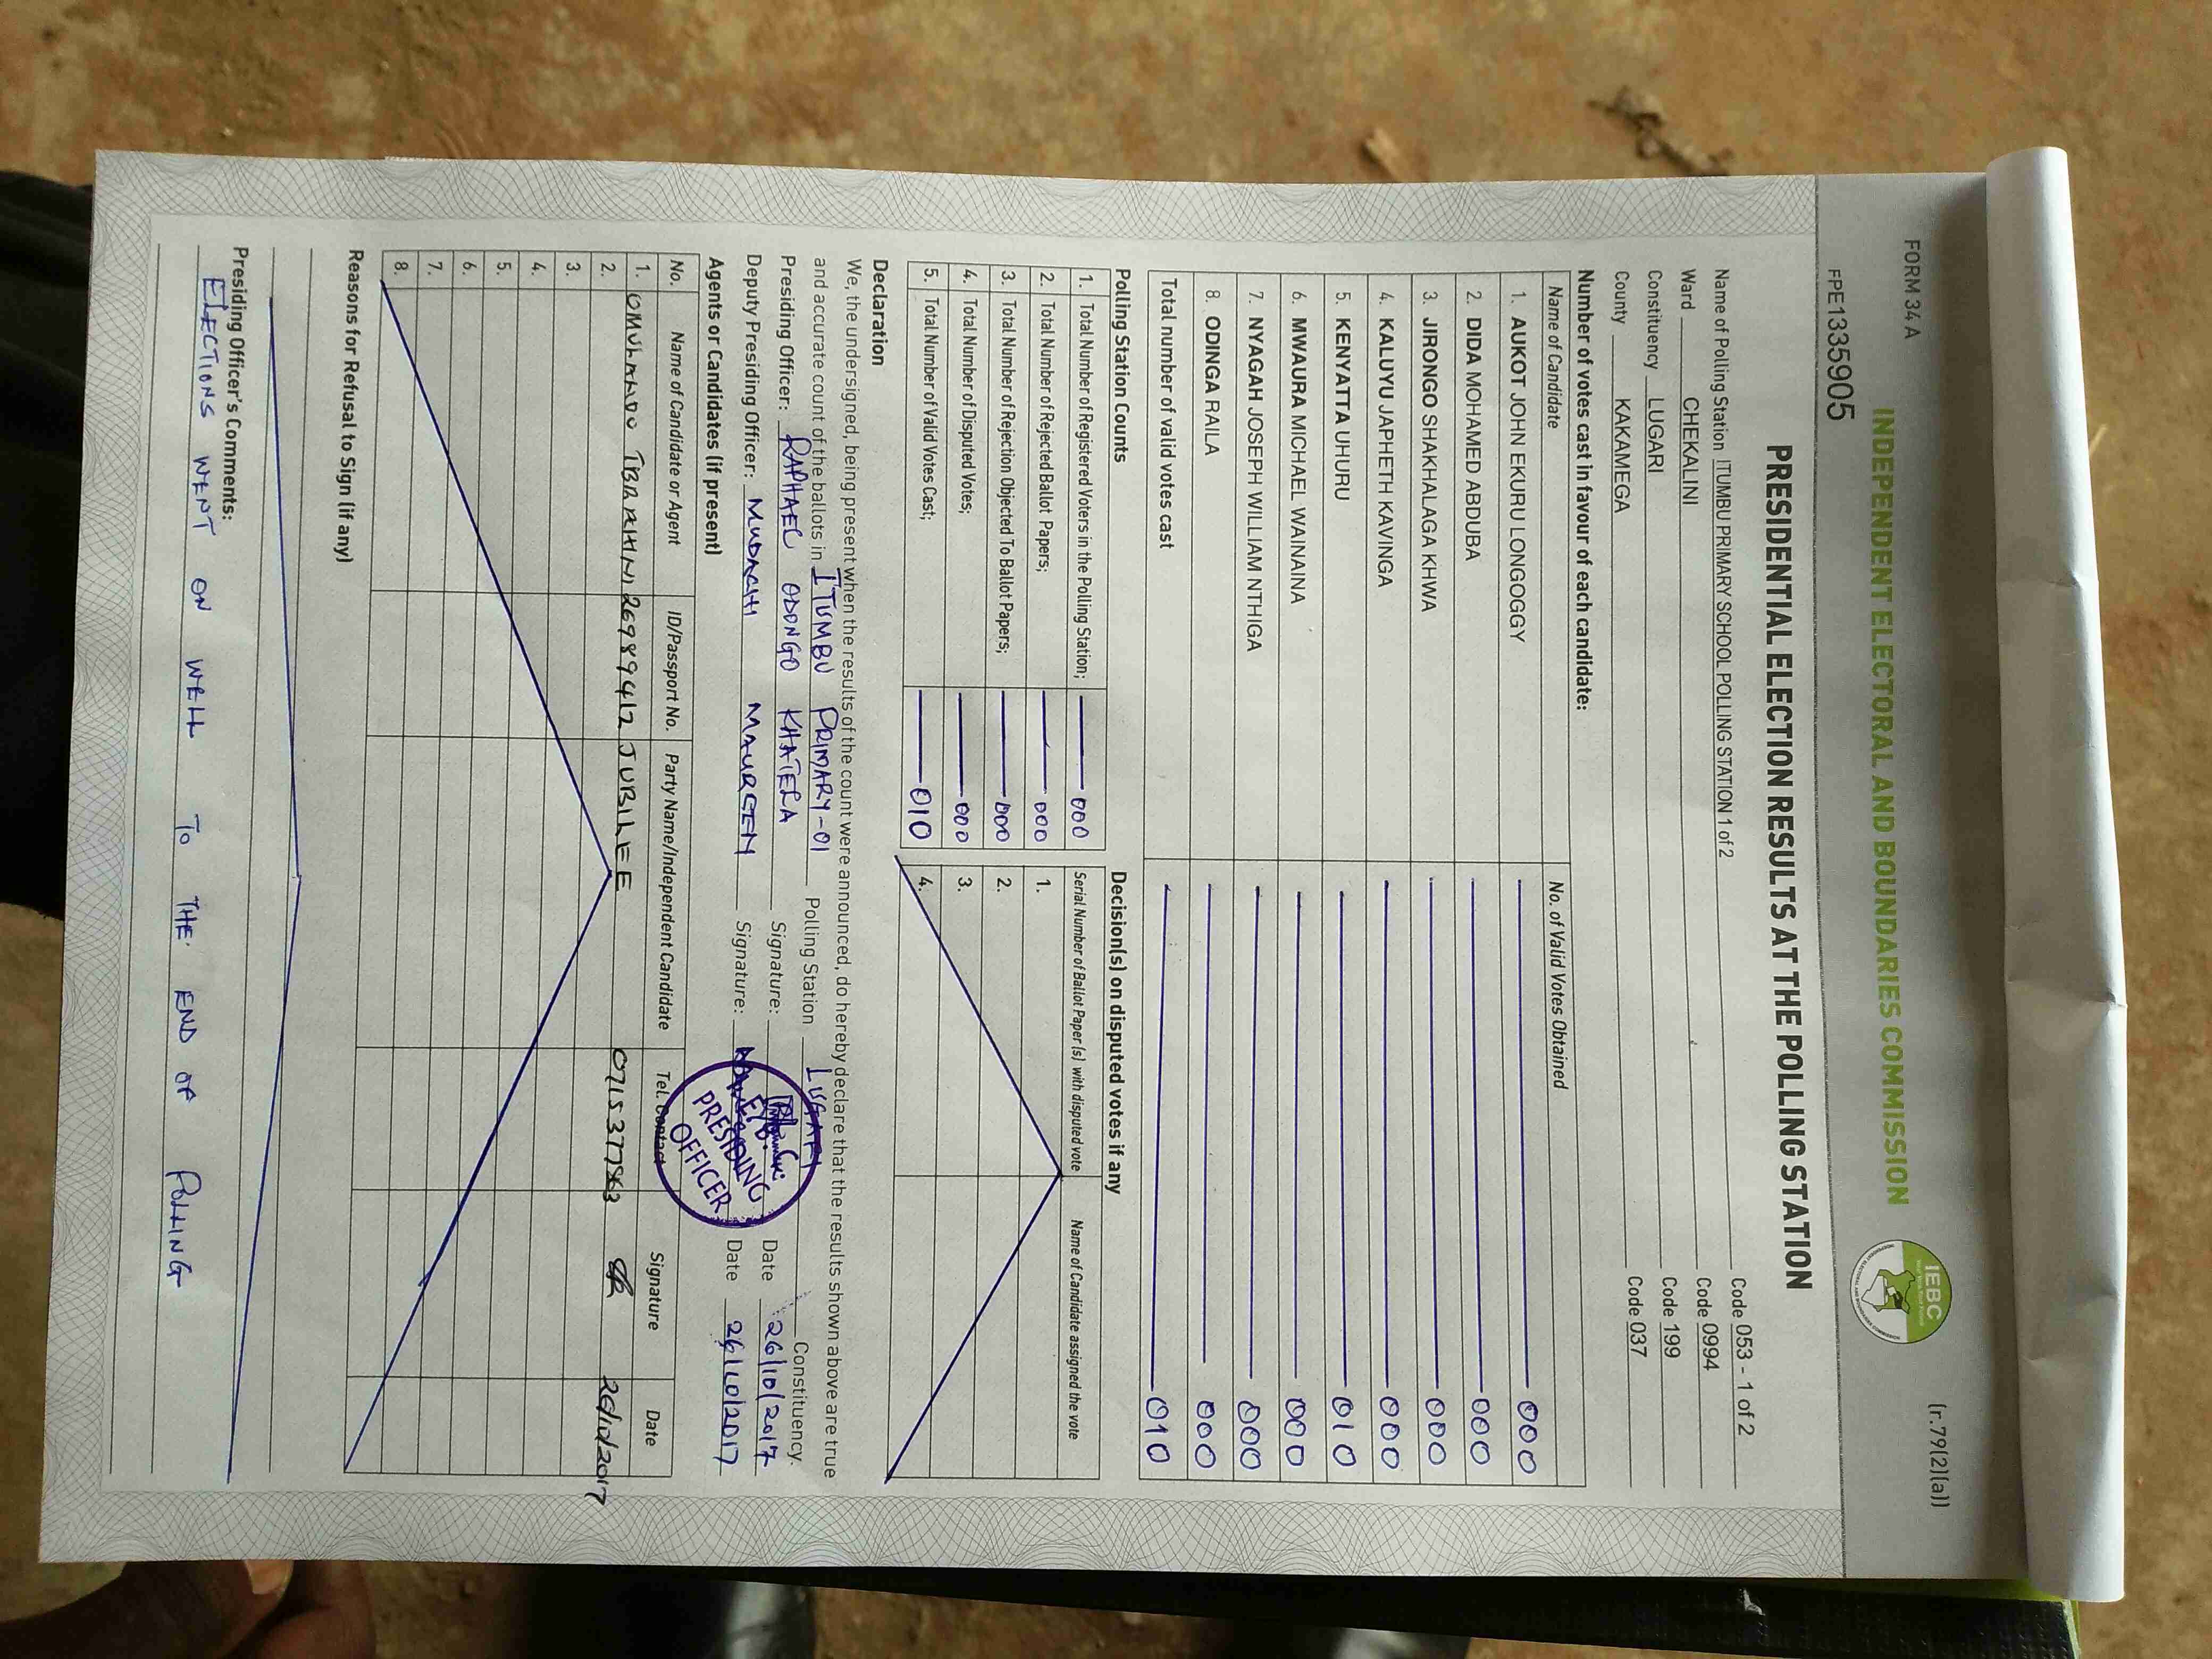 FORM 34 A
(r.79(2)(a))
INDEPENDENT ELECTORAL AND BOUNDARIES COMMISSION
IEBC
FPE1335905
PRESIDENTIAL ELECTION RESULTS AT THE POLLING STATION
Name of Polling Station ITUMBU PRIMARY SCHOOL POLLING STATION 1 of 2 Code 053 - 1 of 2
Ward CHEKALINI Code 0994
Constituency LUGARI Code 199
County KAKAMEGA Code 037
Number of votes cast in favour of each candidate:
Name of Candidate No. of Valid Votes Obtained
1. AUKOT JOHN EKURU LONGOGGY 000
2. DIDA MOHAMED ABDUBA 000
3. JIRONGO SHAKHALAGA KHWA 000
4. KALUYU JAPHETH KAVINGA 000
5. KENYATTA UHURU 010
6. MWAURA MICHAEL WAINAINA 000
7. NYAGAH JOSEPH WILLIAM NTHIGA 000
8. ODINGA RAILA 000
Total number of valid votes cast 010
Polling Station Counts
1. Total Number of Registered Voters in the Polling Station; 000
2. Total Number of Rejected Ballot Papers; 000
3. Total Number of Rejection Objected To Ballot Papers; 000
4. Total Number of Disputed Votes; 000
5. Total Number of Valid Votes Cast; 010
Decision(s) on disputed votes if any
Serial Number of Ballot Paper (s) with disputed vote Name of Candidate assigned the vote
1.
2.
3.
4.
Declaration
We, the undersigned, being present when the results of the count were announced, do hereby declare that the results shown above are true
and accurate count of the ballots in ITUMBU PRIMARY-01 Polling Station LUGARI Constituency.
Presiding Officer: RAPHAEL ODONGO KHATERA Signature: Date 26/10/2017
Deputy Presiding Officer: MUDACHI MAUREEN Signature: Date 26/10/2017
PRESIDING
OFFICER
Agents or Candidates (if present)
No. Name of Candidate or Agent ID/Passport No. Party Name/Independent Candidate Tel. Contact Signature Date
1. OMUHANDO IBRAHIM 26989412 JUBILEE 0715377563 26/10/2017
2.
3.
4.
5.
6.
7.
8.
Reasons for Refusal to Sign (if any)
Presiding Officer's Comments:
ELECTIONS WENT ON WELL TO THE END OF POLLING